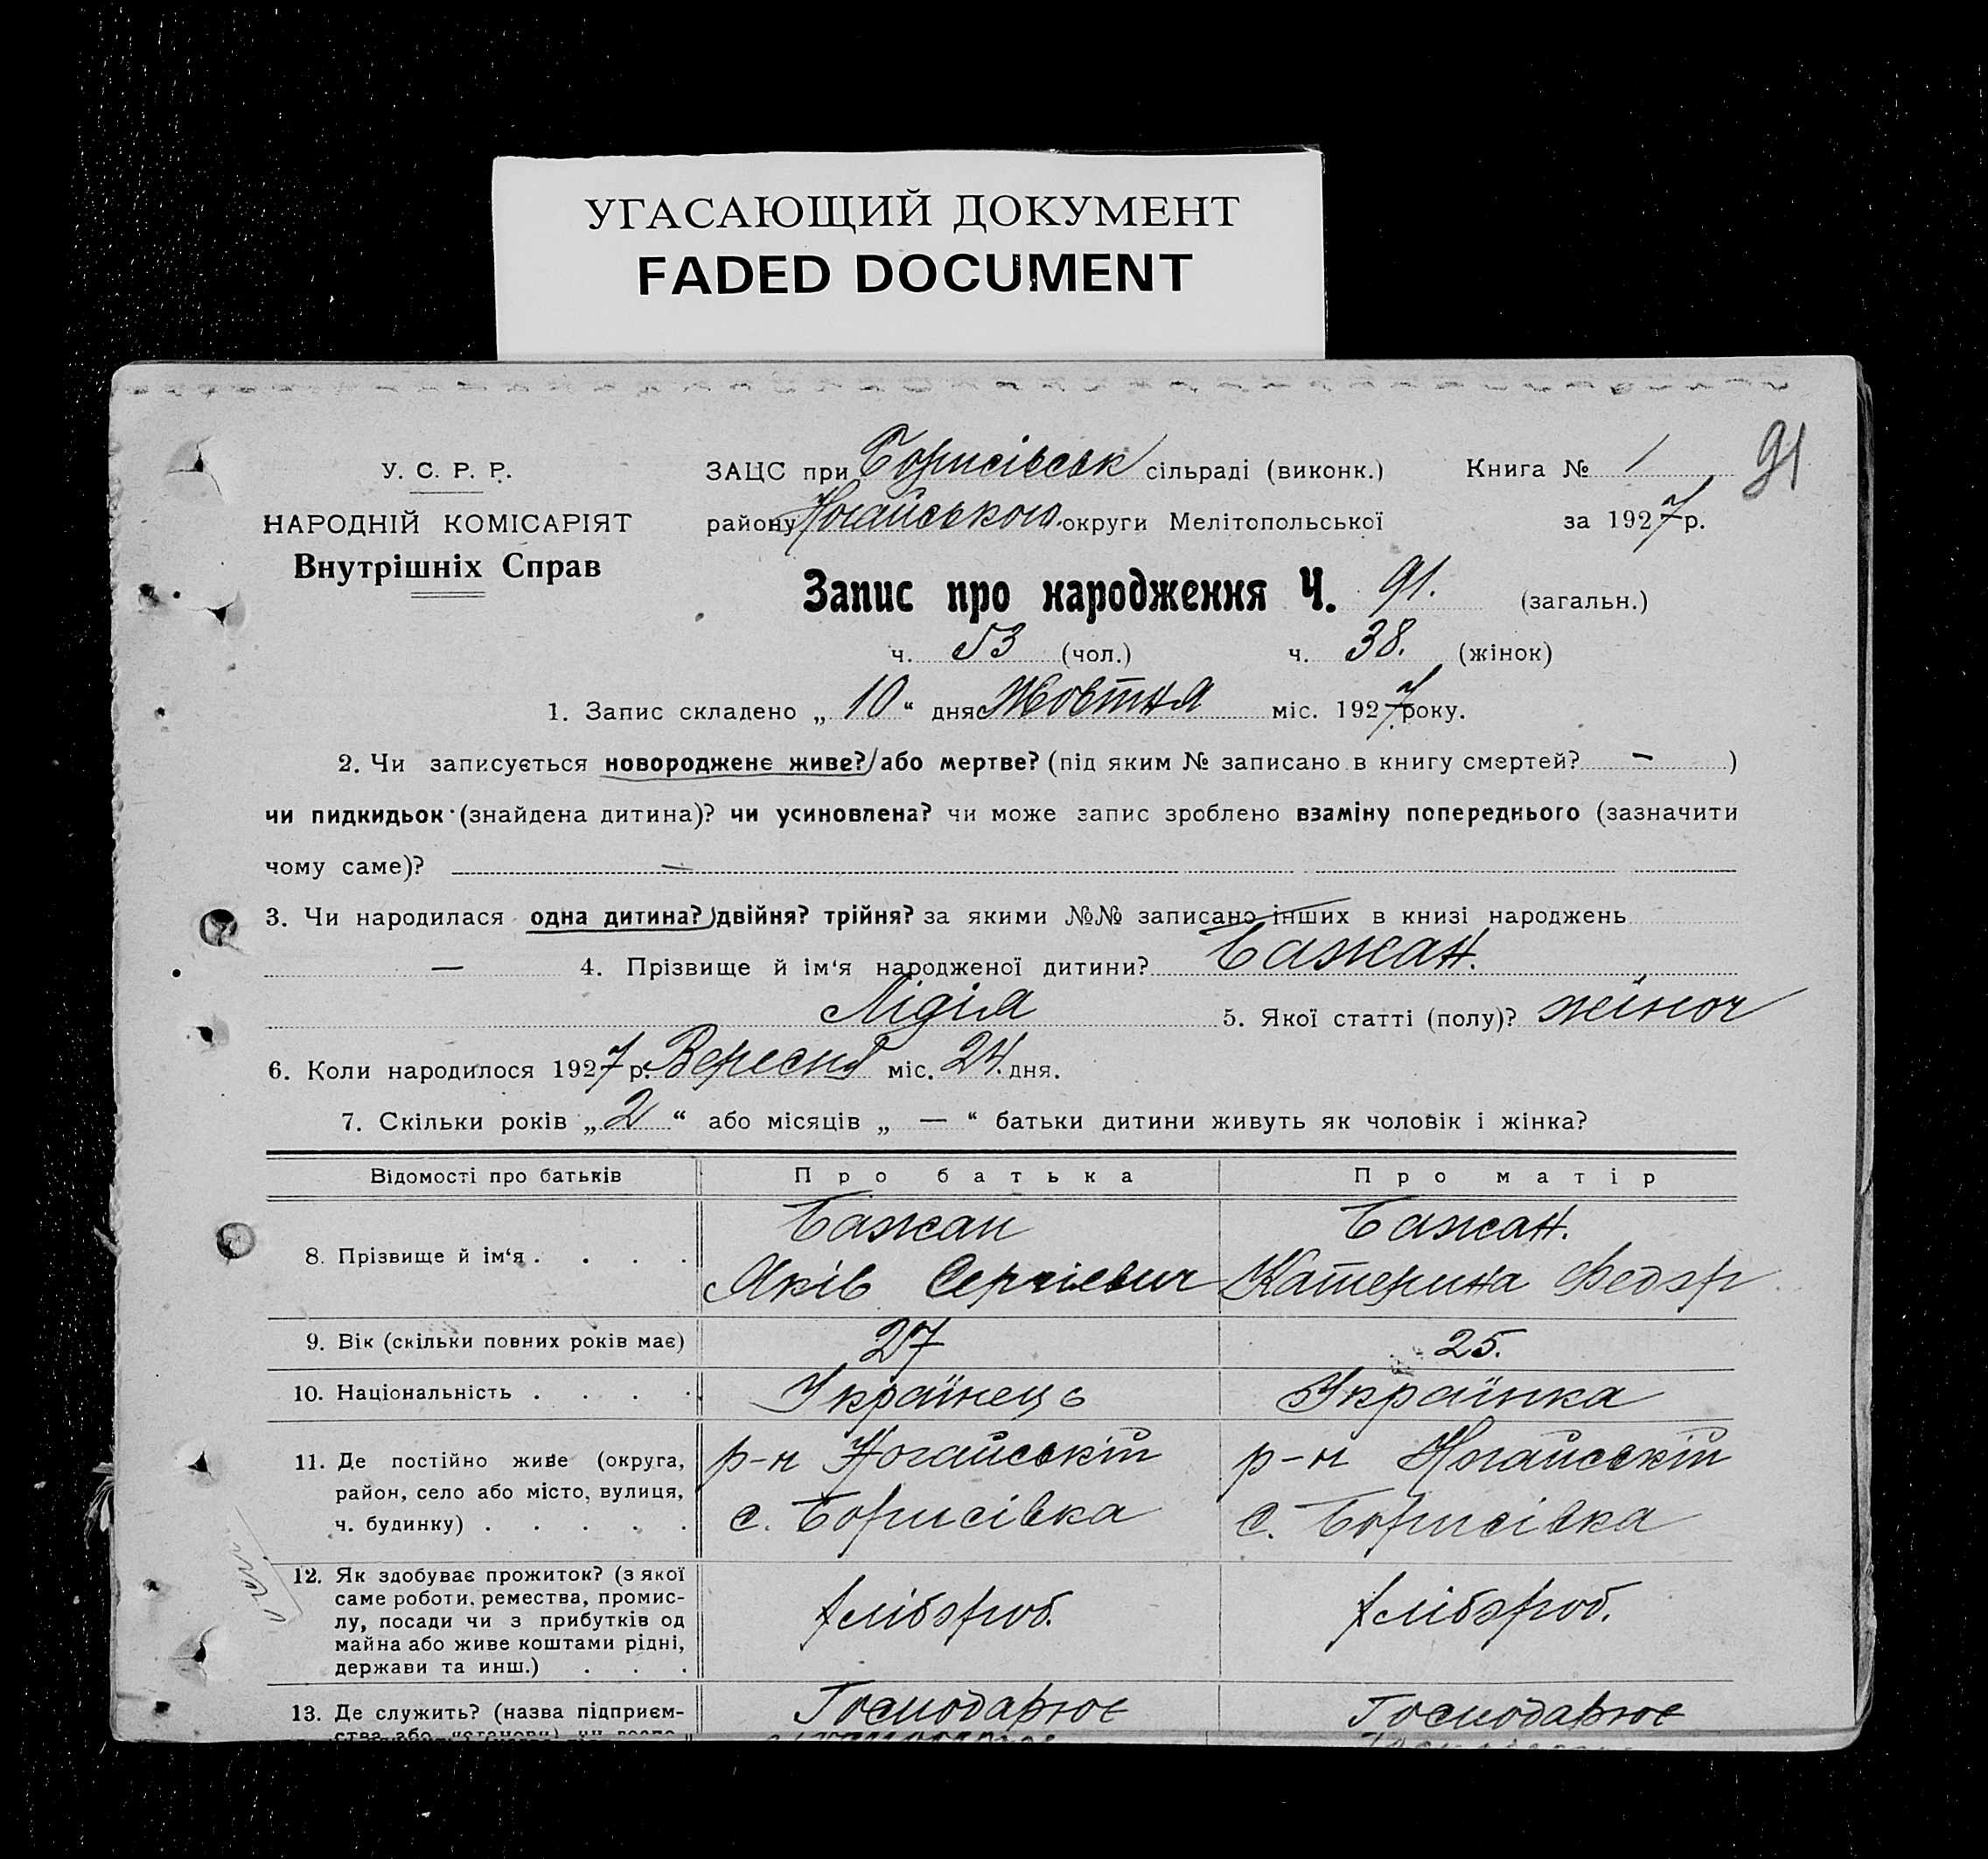 УГАСАЮЩИЙ ДОКУМЕНТ
FADED DOCUMENT
91
У. С. Р. Р.
НАРОДНІЙ КОМІСАРІЯТ
Внутрішніх Справ
ЗАЦС при Борисівськ сільраді (виконк.) Книга № 1
району Ногайського округи Мелітопольської за 1927 р.
Запис про народження Ч. 91. (загальн.)
ч. 53 (чол.) ч. 38. (жінок)
1. Запис складено „ 10 “ дня Жовтня міс. 1927 року.
2. Чи записується новороджене живе? або мертве? (під яким № записано в книгу смертей? — )
чи пидкидьок (знайдена дитина)? чи усиновлена? чи може запис зроблено взаміну попереднього (зазначити
чому саме)? —
3. Чи народилася одна дитина? двійня? трійня? за якими №№ записано інших в книзі народжень
— 4. Прізвище й ім‘я народженої дитини? Бажан.
Лідія 5. Якої статті (полу)? жіноч
6. Коли народилося 1927 р. Вересня міс. 24. дня.
7. Скільки років „ 2 “ або місяців „ — “ батьки дитини живуть як чоловік і жінка?
Відомості про батьків Про батька Про матір
8. Прізвище й ім‘я . . . .
Бажан
Яків Сергієвич
Бажан.
Катерина Федор
9. Вік (скільки повних років має) 27 25.
10. Національність . . . . Українець Українка
11. Де постійно живе (округа,
район, село або місто, вулиця,
ч. будинку) . . . . .
р-н Ногайській
с. Борисівка
р-н Ногайській
с. Борисівка
12. Як здобуває прожиток? (з якої
саме роботи, ремества, промис-
лу, посади чи з прибутків од
майна або живе коштами рідні,
держави та инш.) . . .
хлібороб.
хлібороб.
13. Де служить? (назва підприєм-
ства або установи) чи госпо-
Господарює
Господарює